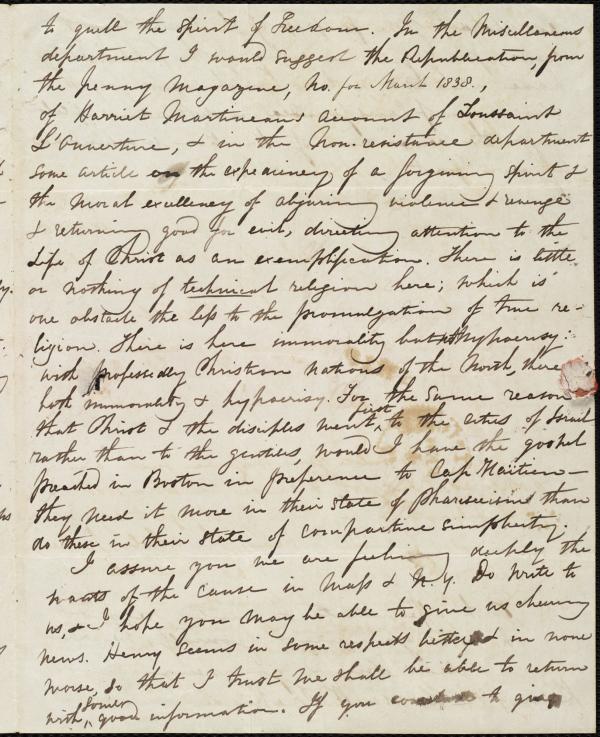 to quell the spirit of Freedom. In the Miscellaneous
department I would suggest the Republication, from
the Penny Magazine, No. for March 1838.,
of Harriet Martineau's account of Toussaint
L'Ouverture, & in the Non-resistance department
some article on the expediency of a forgiving spirit &
the moral excellency of abjuring violence & revenge
& returning good for evil, directing attention to the
Life of Christ as an exemplification. There is little
or nothing of technical religion here; which is
one obstacle the less to the promulgation of true re-
ligion. There is here immorality but not hypocrisy:
with professedly Christian nations of the North, there
both immorality & hypocrisy. For the same reason
that Christ & the disciples went first to the cities of Israel
rather than to the gentiles, would I have the gospel
preached in Boston in preference to Cap Haïtien—
they need it more in their state of Phariseeism than
do these in their state of comparative simplicity.
I assure you we are feeling deeply the
wants of the cause in Mass & N.Y. Do write to
us, & I hope you may be able to give us cheering
news. Henry seems in some respects better & in none
worse, so that I trust we shall be able to return
with some good information. If you to give